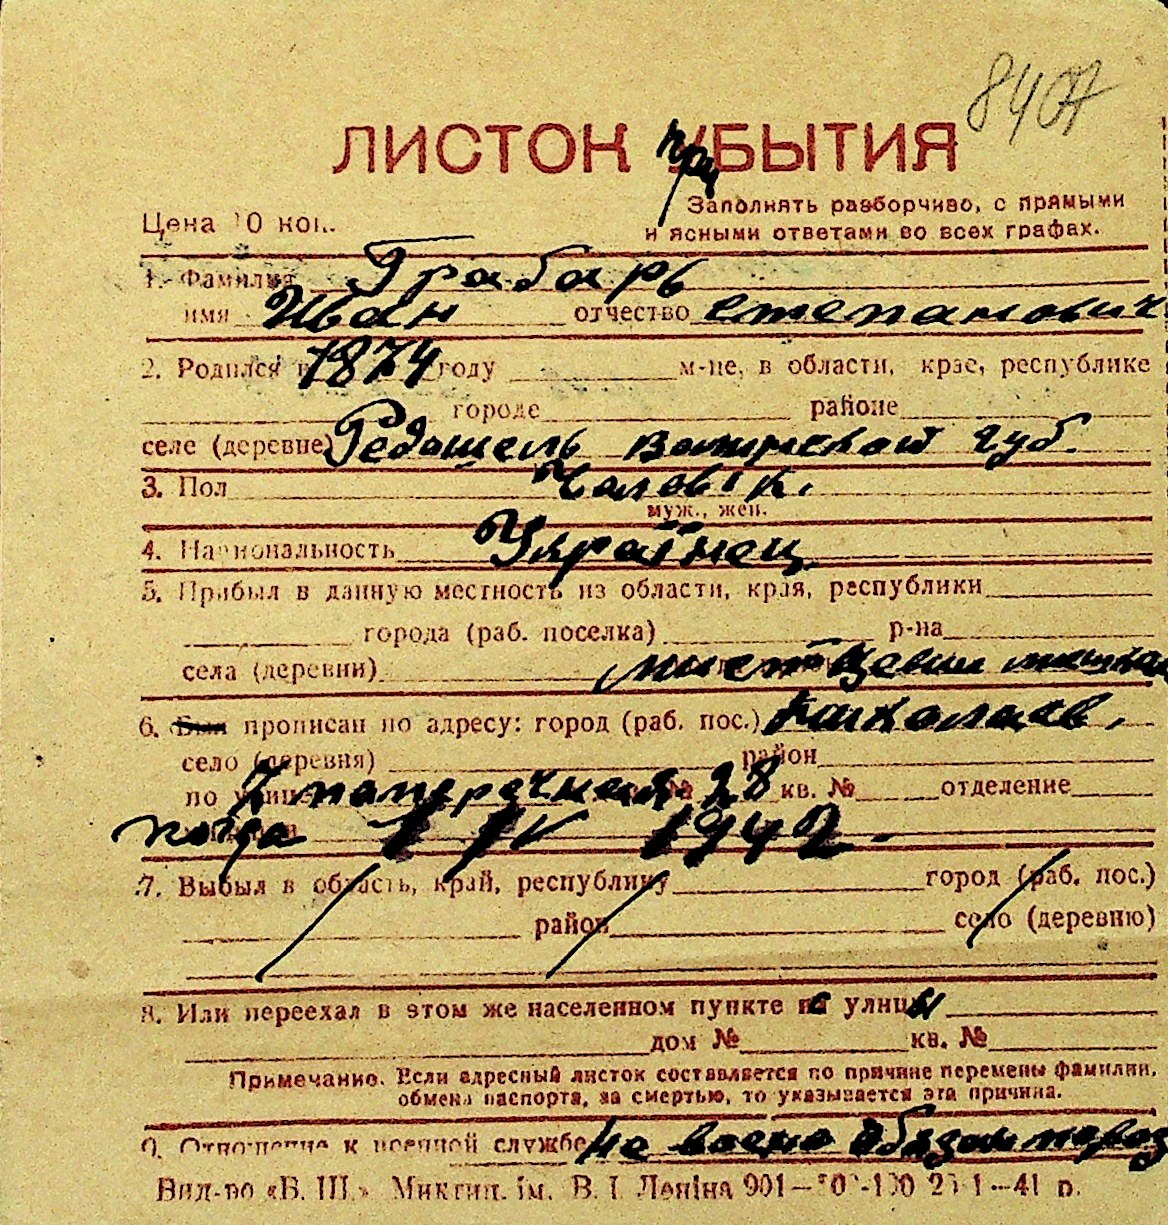 8407
ЛИСТОК УБЫТИЯ
при
Цена 10 коп.
Заполнять разборчиво, с прямыми
и ясными ответами во всех графах.
1. Фамилия Грабарь
имя Иван отчество Степанович
2. Родился в 1874 году м-це, в области, крае, республике
городе районе
селе (деревне) губ.
3. Пол Чоловік.
муж., жен.
4. Национальность Українец
5. Прибыл в данную местность из области, края, республики
города (раб. поселка) р-на
села (деревни)
6. Был прописан по адресу: город (раб. пос.) Николаев,
село (деревня) район
по улице 7 поперечная № 28 кв. № отделение
когда 1 IV 1942.
7. Выбыл в область, край, республику город (раб. пос.)
район село (деревню)
8. Или переехал в этом же населенном пункте с улицы
дом № кв. №
Примечание. Если адресный листок составляется по причине перемены фамилии,
обмена паспорта, за смертью, то указывается эта причина.
9. Отношение к военной службе не военно
Вид-во «Б. Ш.» Микгип. ім. В. І. Леніна 901— —41 р.